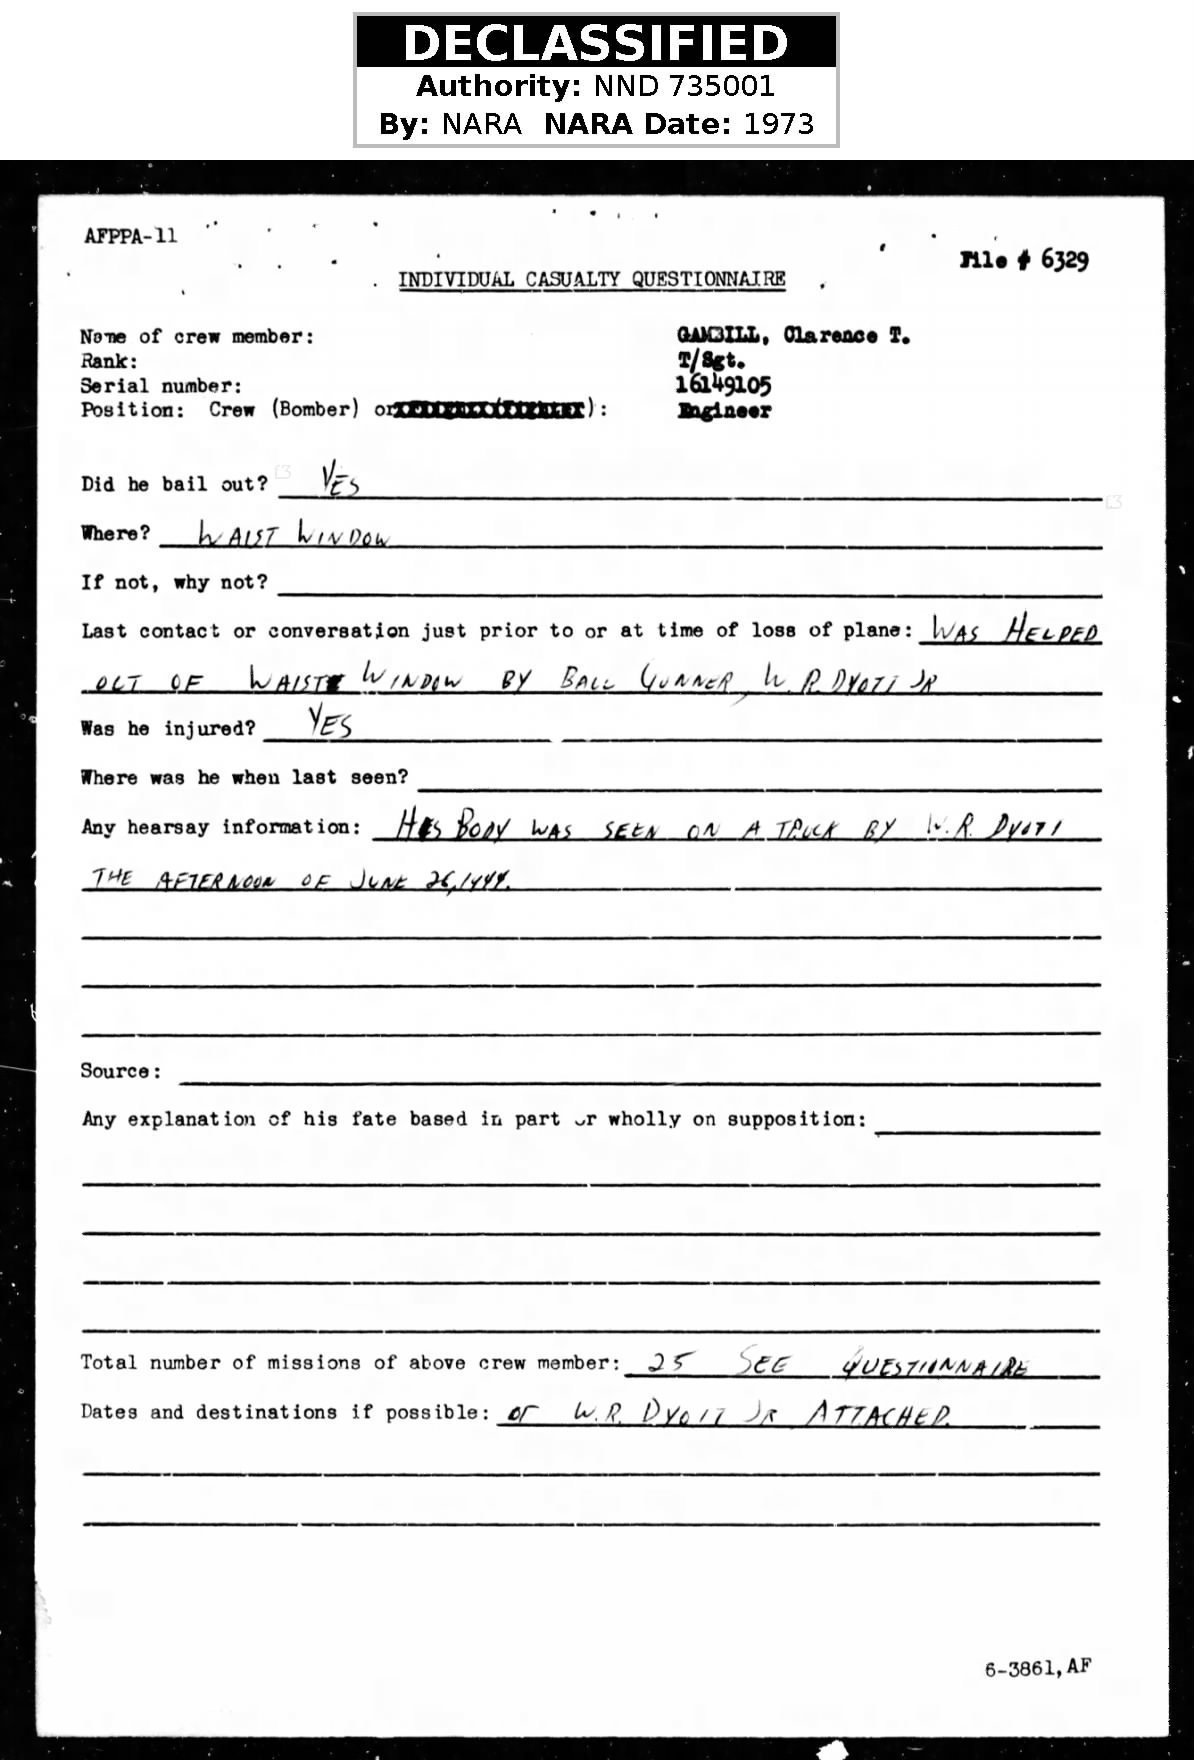 DECLASSIFIED
Authority: NND 735001
By: NARA NARA Date: 1973
AFPPA-11
File # 6329
INDIVIDUAL CASUALTY QUESTIONNAIRE
Name of crew member: GAMBILL, Clarence T.
Rank: T/Sgt.
Serial number: 16149105
Position: Crew (Bomber) or ): Engineer
Did he bail out? YES
Where? WAIST WINDOW
If not, why not?
Last contact or conversation just prior to or at time of loss of plane: WAS HELPED
OUT OF WAIST WINDOW BY BALL GUNNER, W. R. DYOTT JR
Was he injured? YES
Where was he when last seen?
Any hearsay information: HIS BODY WAS SEEN ON A TRUCK BY W. R. DYOTT
THE AFTERNOON OF JUNE 26, 1944.
Source:
Any explanation of his fate based in part or wholly on supposition:
Total number of missions of above crew member: 25 SEE QUESTIONNAIRE
Dates and destinations if possible: OF W. R. DYOTT JR ATTACHED.
6-3861, AF